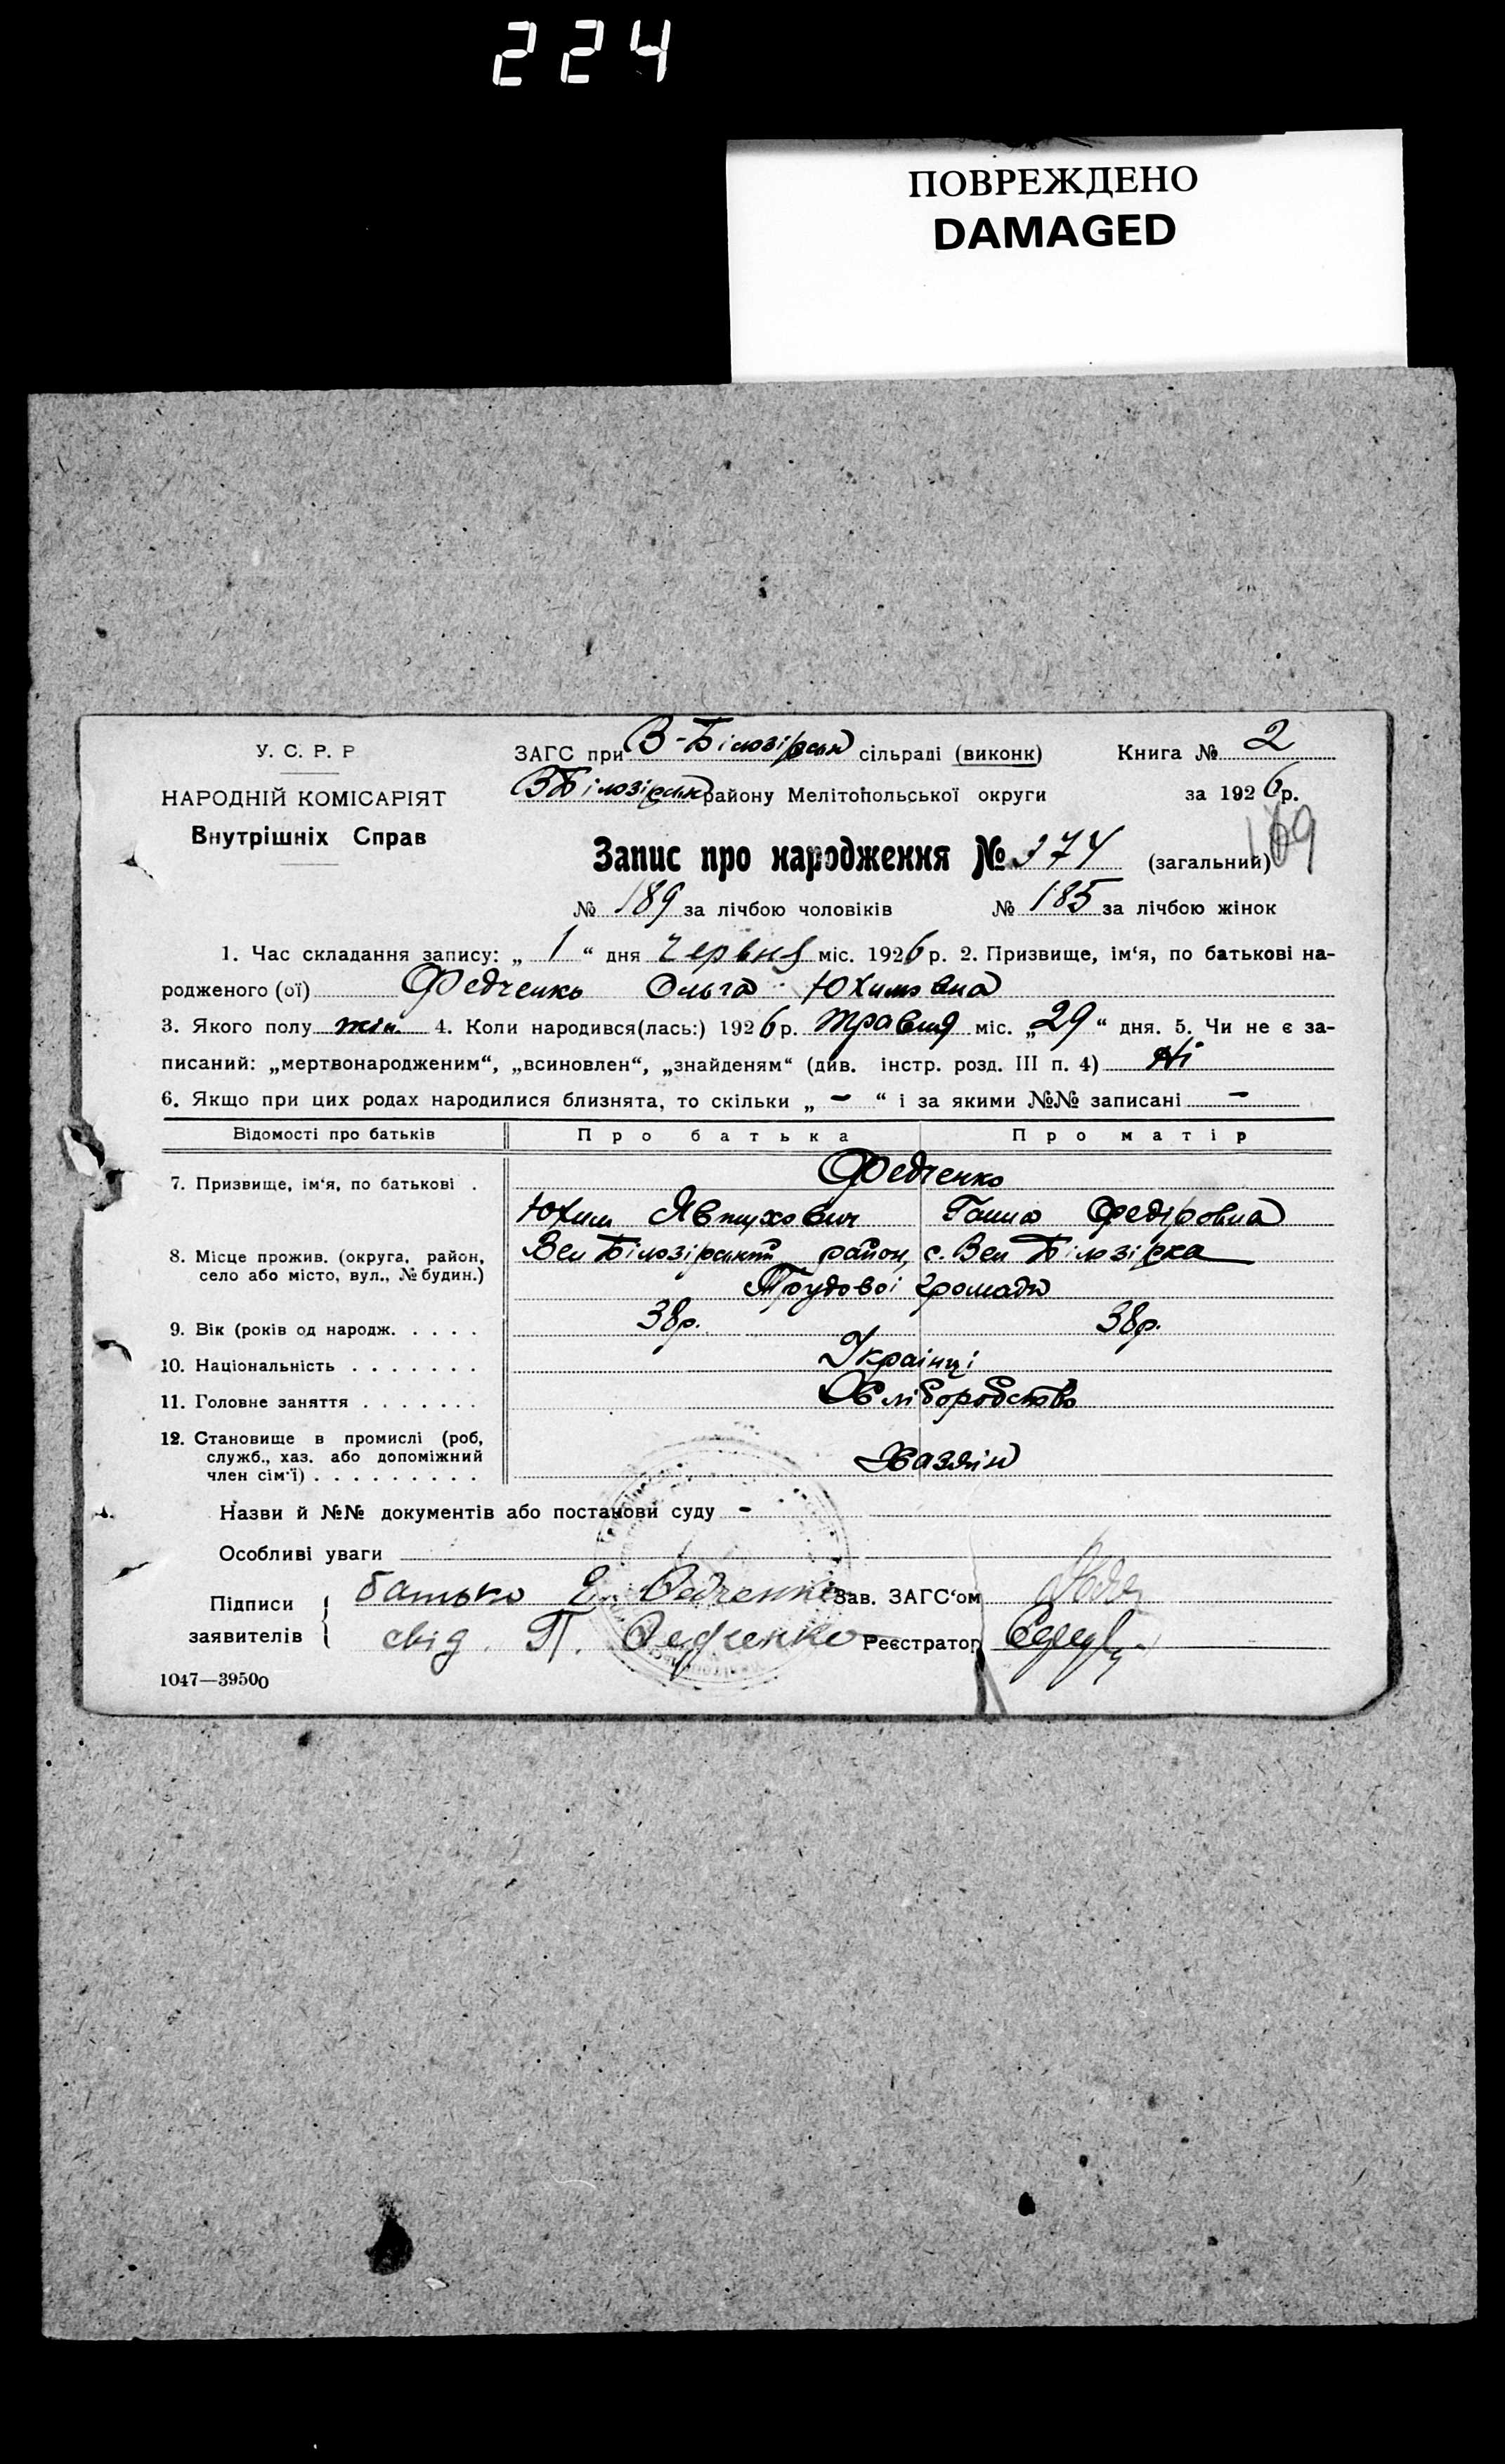 224
ПОВРЕЖДЕНО
DAMAGED
У. С. Р. Р
ЗАГС при В-Білозірськ сільраді (виконк) Книга № 2
НАРОДНІЙ КОМІСАРІЯТ
ВБілозірськ району Мелітопольської округи за 1926 р.
Внутрішніх Справ
169
Запис про народження № 374 (загальний)
№ 189 за лічбою чоловіків № 185 за лічбою жінок
1. Час складання запису: „ 1 “ дня червня міс. 1926 р. 2. Призвище, ім‘я, по батькові на-
родженого (ої) Федченко Ольга Юхимовна
3. Якого полу жін. 4. Коли народився(лась:) 1926 р. травня міс. „29“ дня. 5. Чи не є за-
писаний: „мертвонародженим“, „всиновлен“, „знайденям“ (див. інстр. розд. III п. 4) Ні
6. Якщо при цих родах народилися близнята, то скільки „ – “ і за якими №№ записані –
Відомості про батьків Про батька Про матір
7. Призвище, ім‘я, по батькові . Федченко
Юхим Явтухович Ганна Федіровна
8. Місце прожив. (округа, район, Вел Білозірський район, с. Вел Білозірка
село або місто, вул., № будин.)
Трудової громади
9. Вік (років од народж. . . . . 38р. 38р.
10. Національність . . . . . . . Українці
11. Головне заняття . . . . . . . Хліборобство
12. Становище в промислі (роб,
служб., хаз. або допоміжний Хазяїн
член сім‘ї) . . . . . . . . .
Назви й №№ документів або постанови суду -
Особливі уваги
Підписи батько Е. Федченко Зав. ЗАГС‘ом
заявителів свід. П. Федченко Реєстратор
1047—39500